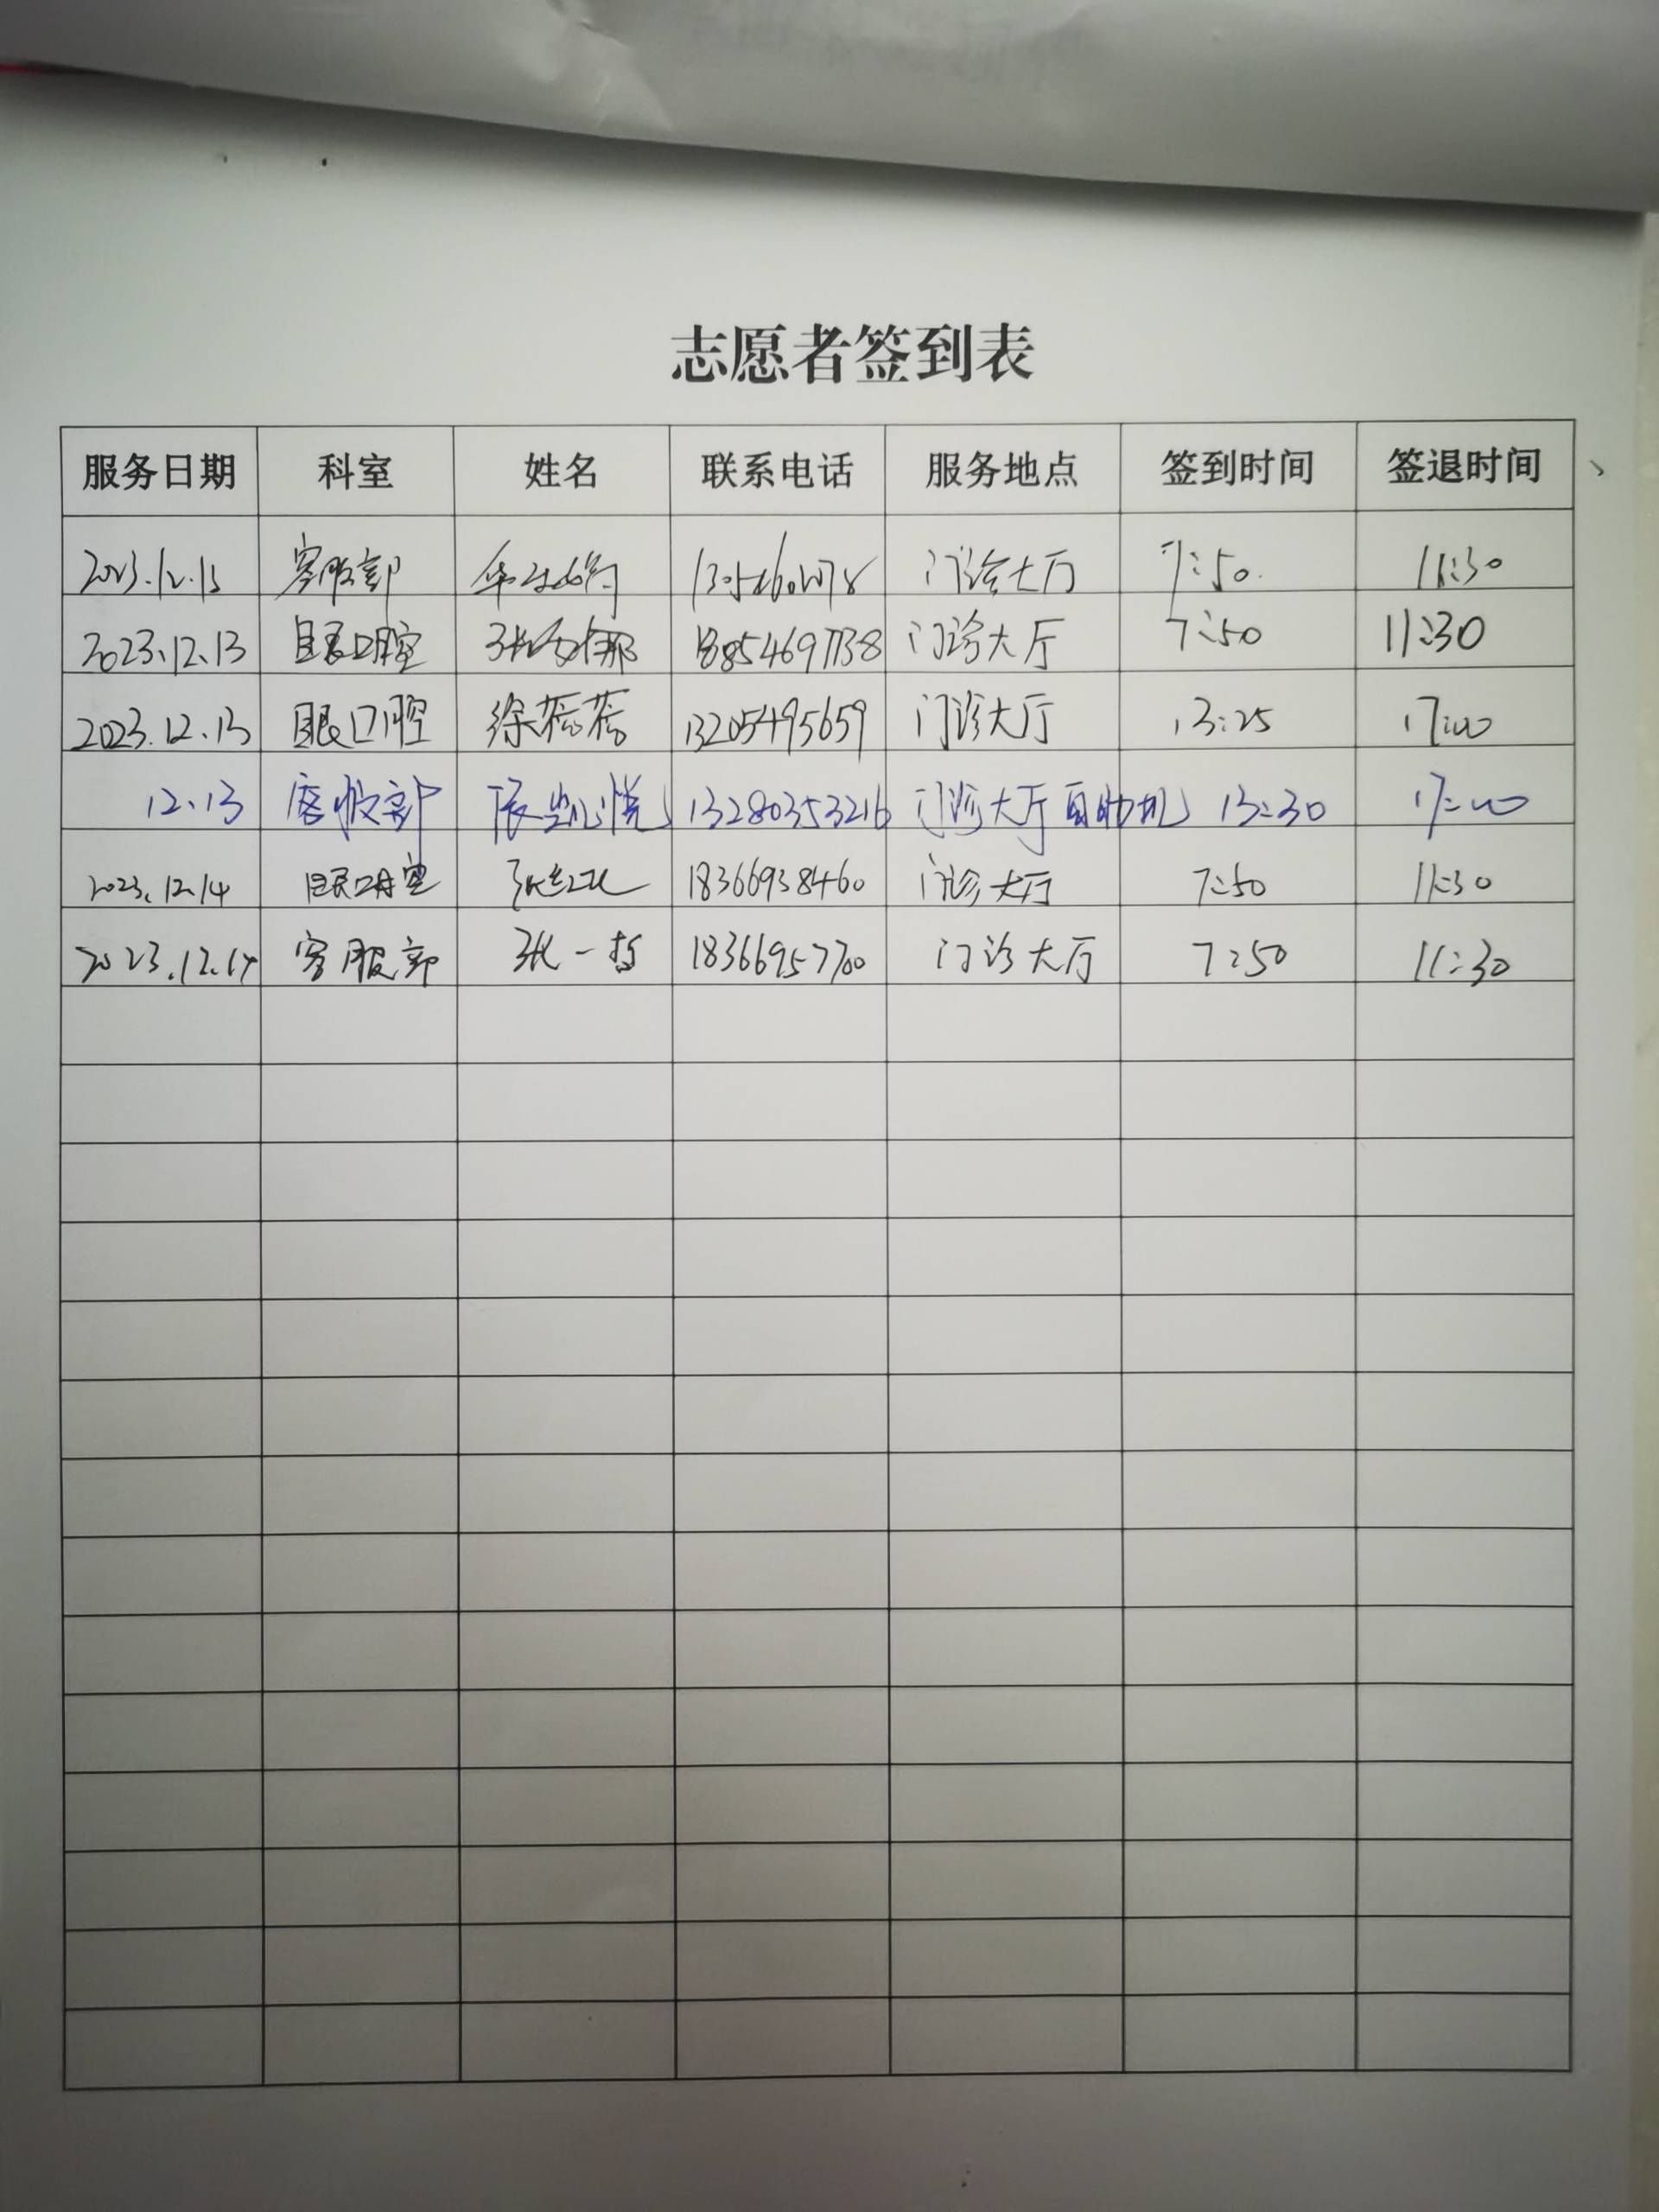 志愿者签到表
服务日期 科室 姓名 联系电话 服务地点 签到时间 签退时间
2023.12.13 客服部 门诊大厅 7:50 11:30
2023.12.13 眼口腔 18854697738 门诊大厅 7:50 11:30
2023.12.13 眼口腔 徐蓓蓓 13205495659 门诊大厅 13:25 17:00
12.13 客服部 张凯悦 13280353216 门诊大厅自助机 13:30 17:00
2023.12.14 眼口腔 张红 18366938460 门诊大厅 7:50 11:30
2023.12.14 客服部 张一哲 18366957700 门诊大厅 7:50 11:30